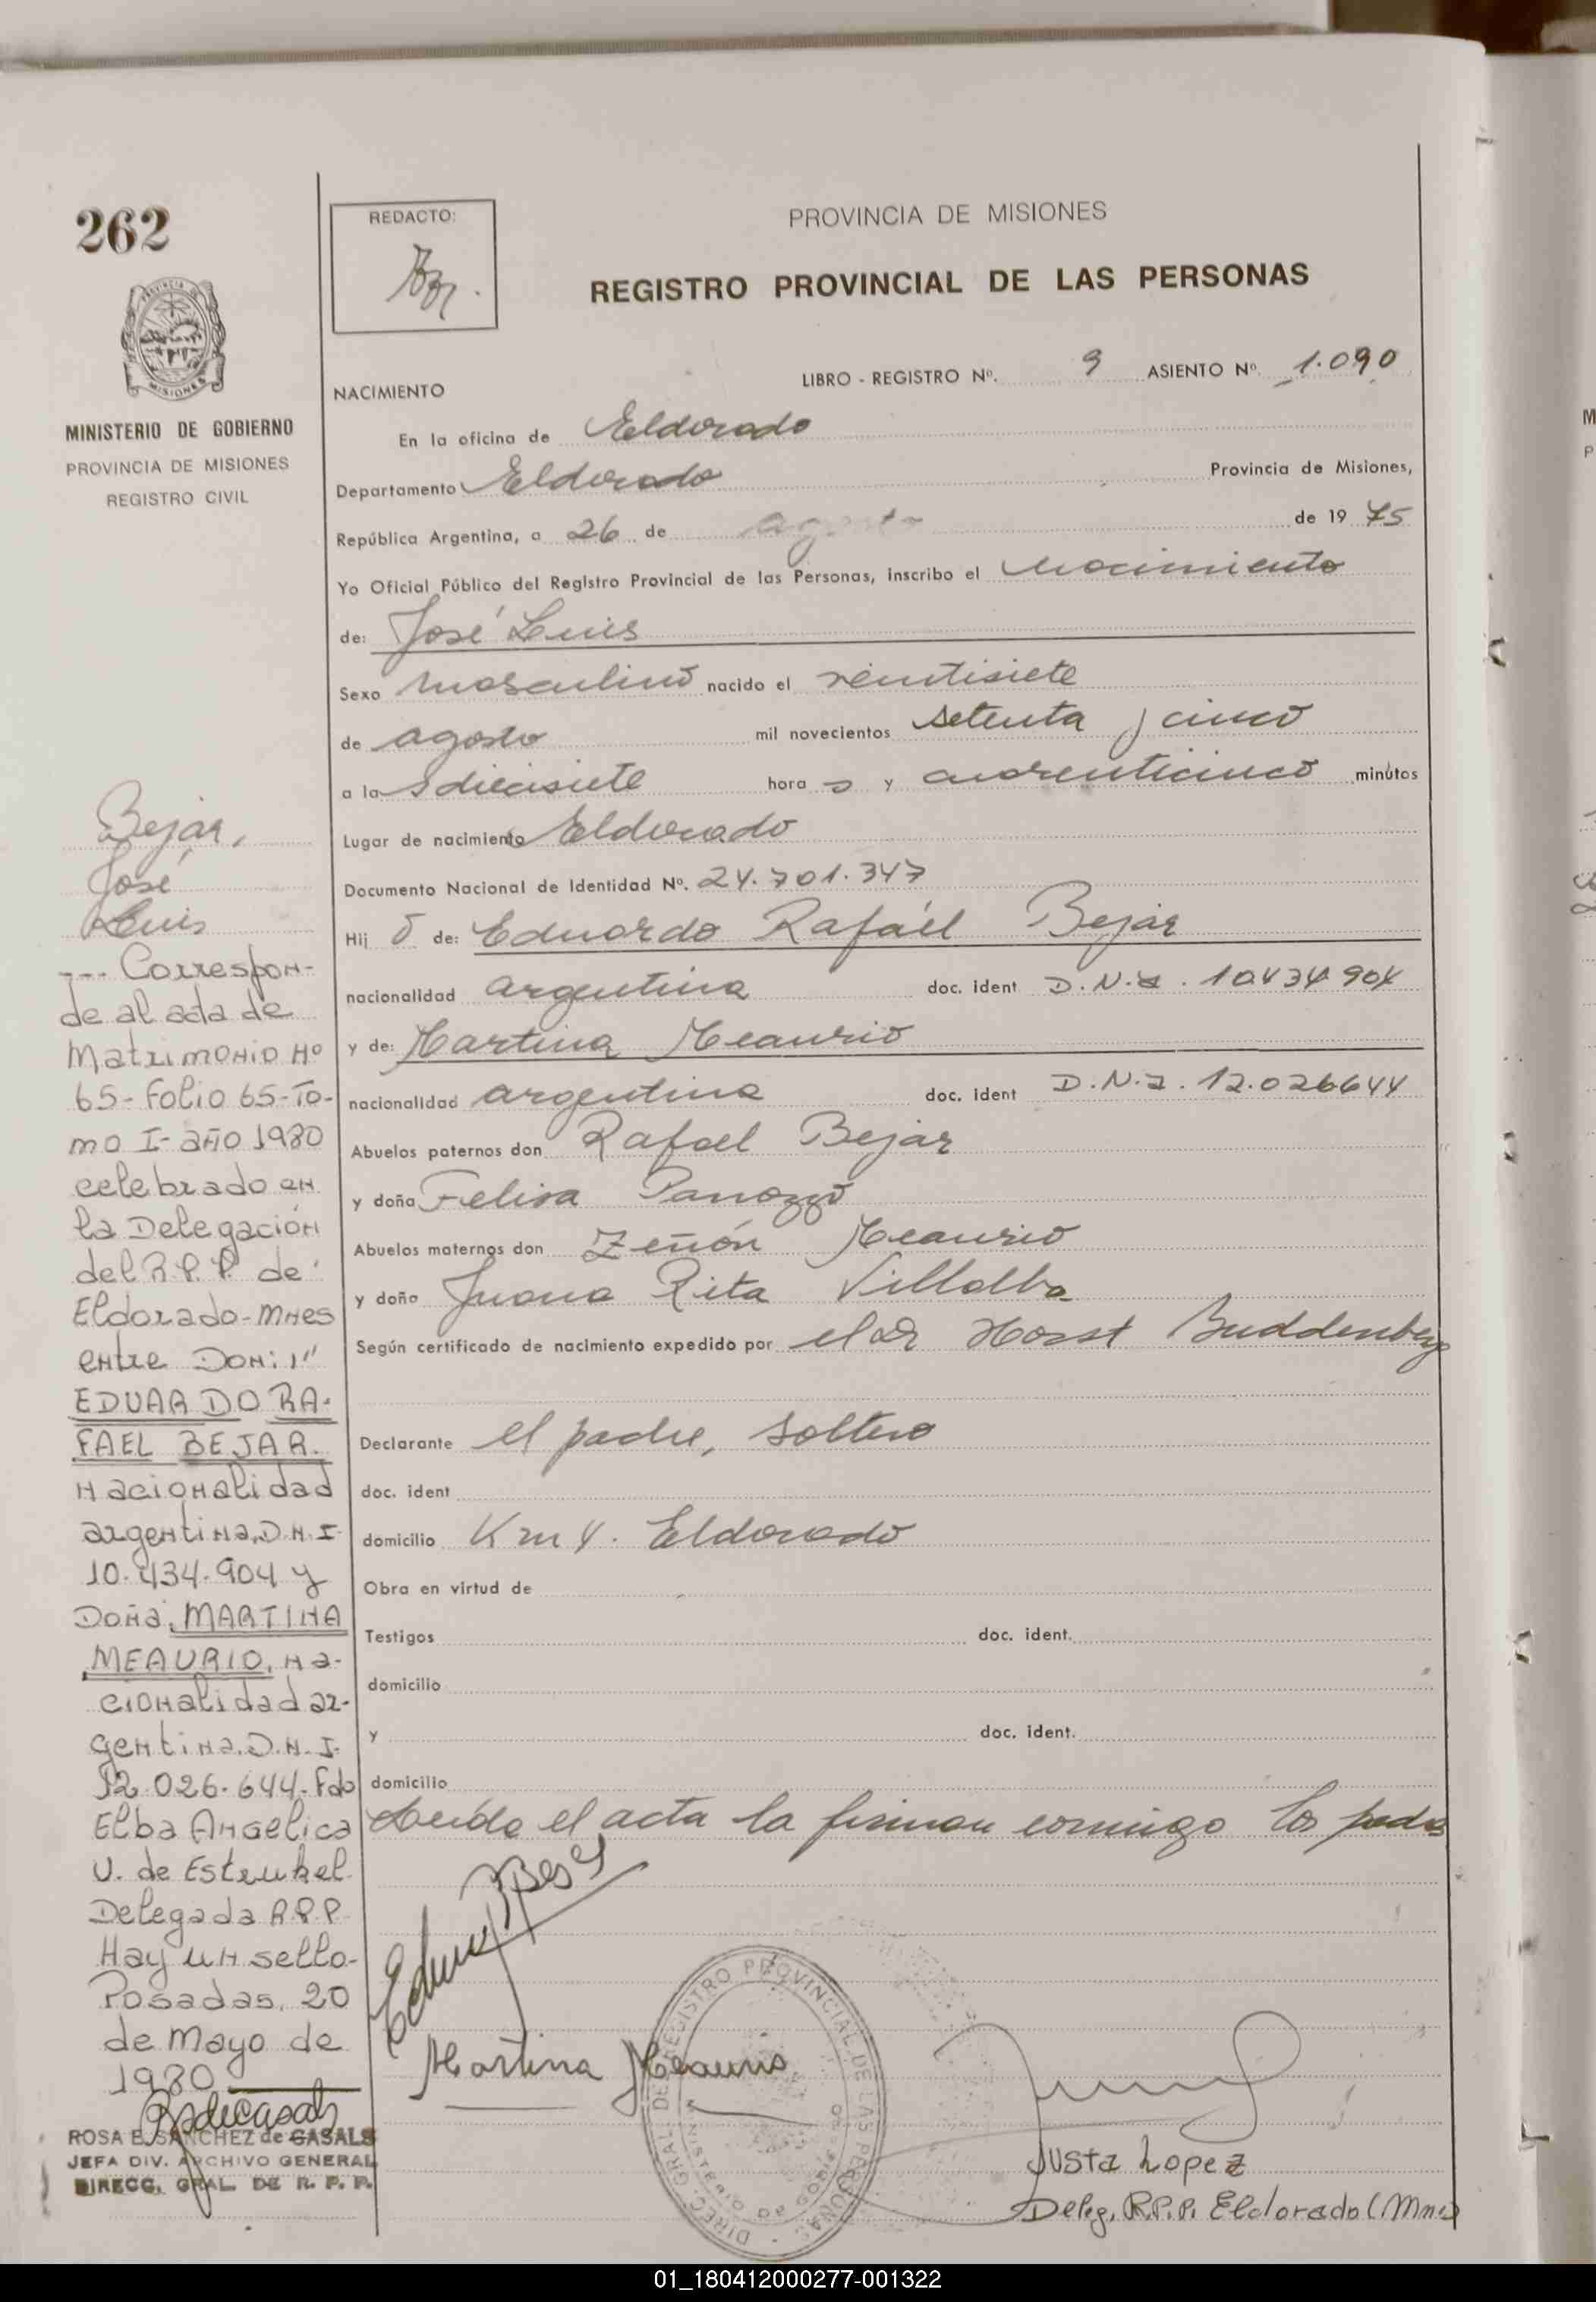 262
MINISTERIO DE GOBIERNO
PROVINCIA DE MISIONES
REGISTRO CIVIL
REDACTO:
PROVINCIA DE MISIONES
REGISTRO PROVINCIAL DE LAS PERSONAS
LIBRO - REGISTRO Nº. 9 ASIENTO Nº. 1.090
NACIMIENTO
En la oficina de Eldorado
Departamento Eldorado Provincia de Misiones,
República Argentina, a 26 de agosto de 19 75
Yo Oficial Público del Registro Provincial de las Personas, inscribo el nacimiento
de: José Luis
Sexo masculino nacido el veintisiete
de agosto mil novecientos setenta y cinco
a la s diecisiete hora s y cuarenticinco minutos
Lugar de nacimiento Eldorado
Documento Nacional de Identidad Nº. 24.701.347
Hij o de: Eduardo Rafael Bejar
nacionalidad argentina doc. ident D.N.I. 10.434.904
y de: Martina Meaurio
nacionalidad argentina doc. ident D.N.I. 12.026644
Abuelos paternos don Rafael Bejar
y doña Felisa Panozzo
Abuelos maternos don Zeñón Meaurio
y doña Juana Rita Villalba
Según certificado de nacimiento expedido por el Dr Horst Buddenberg
Declarante el padre, soltero
doc. ident
domicilio Km 4. Eldorado
Obra en virtud de
Testigos doc. ident.
domicilio
y doc. ident.
domicilio
Leída el acta la firman conmigo los padres
Martina Meaurio
DIREC. GRAL. DE REGISTRO PROVINCIAL DE LAS PERSONAS
MINISTERIO DE GOBIERNO
Justa Lopez
Deleg. R.P.P. Eldorado (Mnes)
Bejar,
José
Luis
--- Correspon-
de al acta de
Matrimonio Nº
65- Folio 65- To-
mo I- año 1980
celebrado en
la Delegación
del R.P.P. de
Eldorado-Mnes
entre Don:
EDUARDO RA-
FAEL BEJAR.
nacionalidad
argentina, D.N.I.
10.434.904 y
Doña: MARTINA
MEAURIO, na-
cionalidad ar-
gentina. D.N.I.
12.026.644. Fdo
Elba Angelica
V. de Estrukel
Delegada R.P.P.
Hay un sello-
Posadas, 20
de Mayo de
1980
ROSA E. SANCHEZ de CASALS
JEFA DIV. ARCHIVO GENERAL
DIRECC. GRAL. DE R. P. P.
01_180412000277-001322